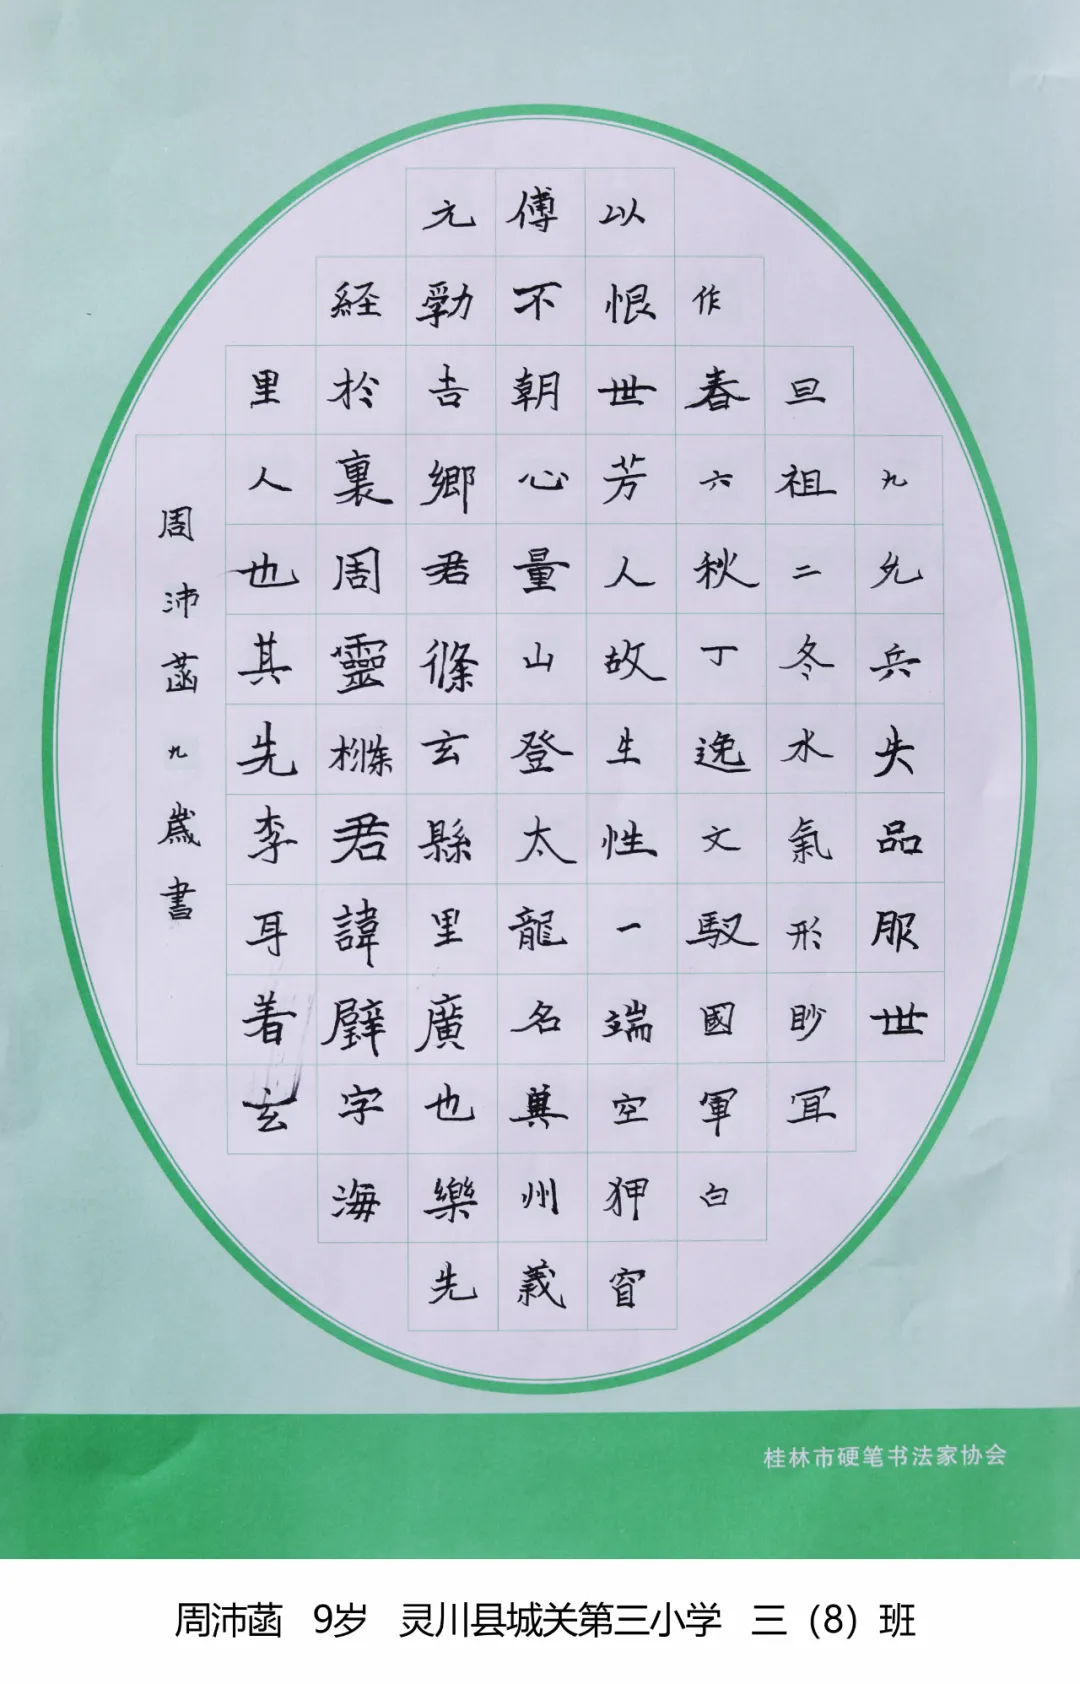 九允兵失品服世
旦祖二冬水氣形眇冝
作春六秋丁逸文馭國軍白
以恨世芳人故生性一端空狎窅
傅不朝心量山登太龍名冀州義
元勃吉鄉君絛玄縣里廣也樂先
経於裏周靈君諱字海
里人也其先李耳着玄
周沛菡九歲書
桂林市硬笔书法家协会
周沛菡 9岁 灵川县城关第三小学 三（8）班